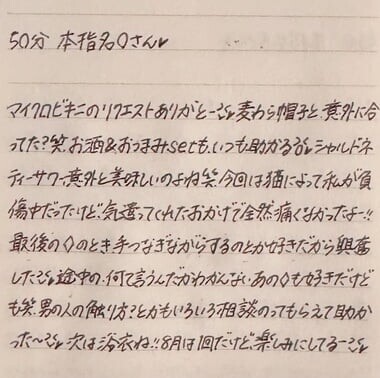 50分 本指名◇さん♥
マイクロビキニのリクエストありがと〜♥麦わら帽子と、意外に合
ってた?笑 お酒&おつまみsetも、いつも助かるる♥シャルドネ
ティーサワー意外と美味しいのよね笑 今回は猫によって私が負
傷中だったけど、気遣ってくれたおかげで全然痛くなかったよー!!
最後の◇のとき手つなぎながらするのとか好きだから興奮
した〜♥途中の、何て言うんだかわかんないあの◇も好きだけど
も笑 男の人の触り方?とかもいろいろ相談のってもらえて助か
った〜♥ 次は浴衣ね!!8月は1回だけど、楽しみにしてる〜♥